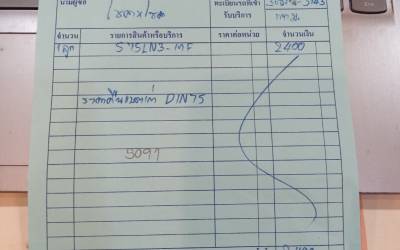 นามผู้ซื้อ
ทะเบียนรถที่เข้า
รับบริการ
กทม
จำนวน รายการสินค้าหรือบริการ ราคาต่อหน่วย จำนวนเงิน
1ลูก S75LN3-MF 2400
ราคาคืนแบตเก่า DIN75
5097